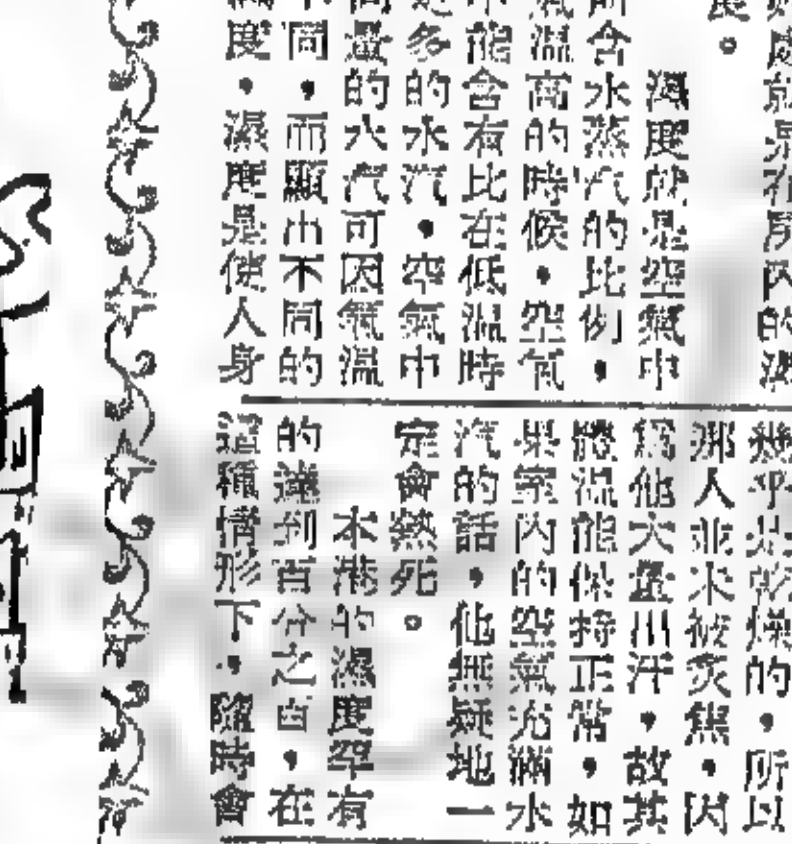 處就是在房內的濕
度。
濕度就是空氣中
所含水蒸汽的比例，
氣溫高的時候，空氣
中能含有比在低溫時
更多的水汽，空氣中
同量的水汽可因氣溫
不同，而顯出不同的
濕度，濕度是使人身
幾乎是乾燥的，所以
那人並未被炙焦，因
爲他大量出汗，故其
體溫能保持正常，如
果室內的空氣充滿水
汽的話，他無疑地一
定會熱死。
本港的濕度罕有
的達到百分之百，在
這種情形下，隨時會